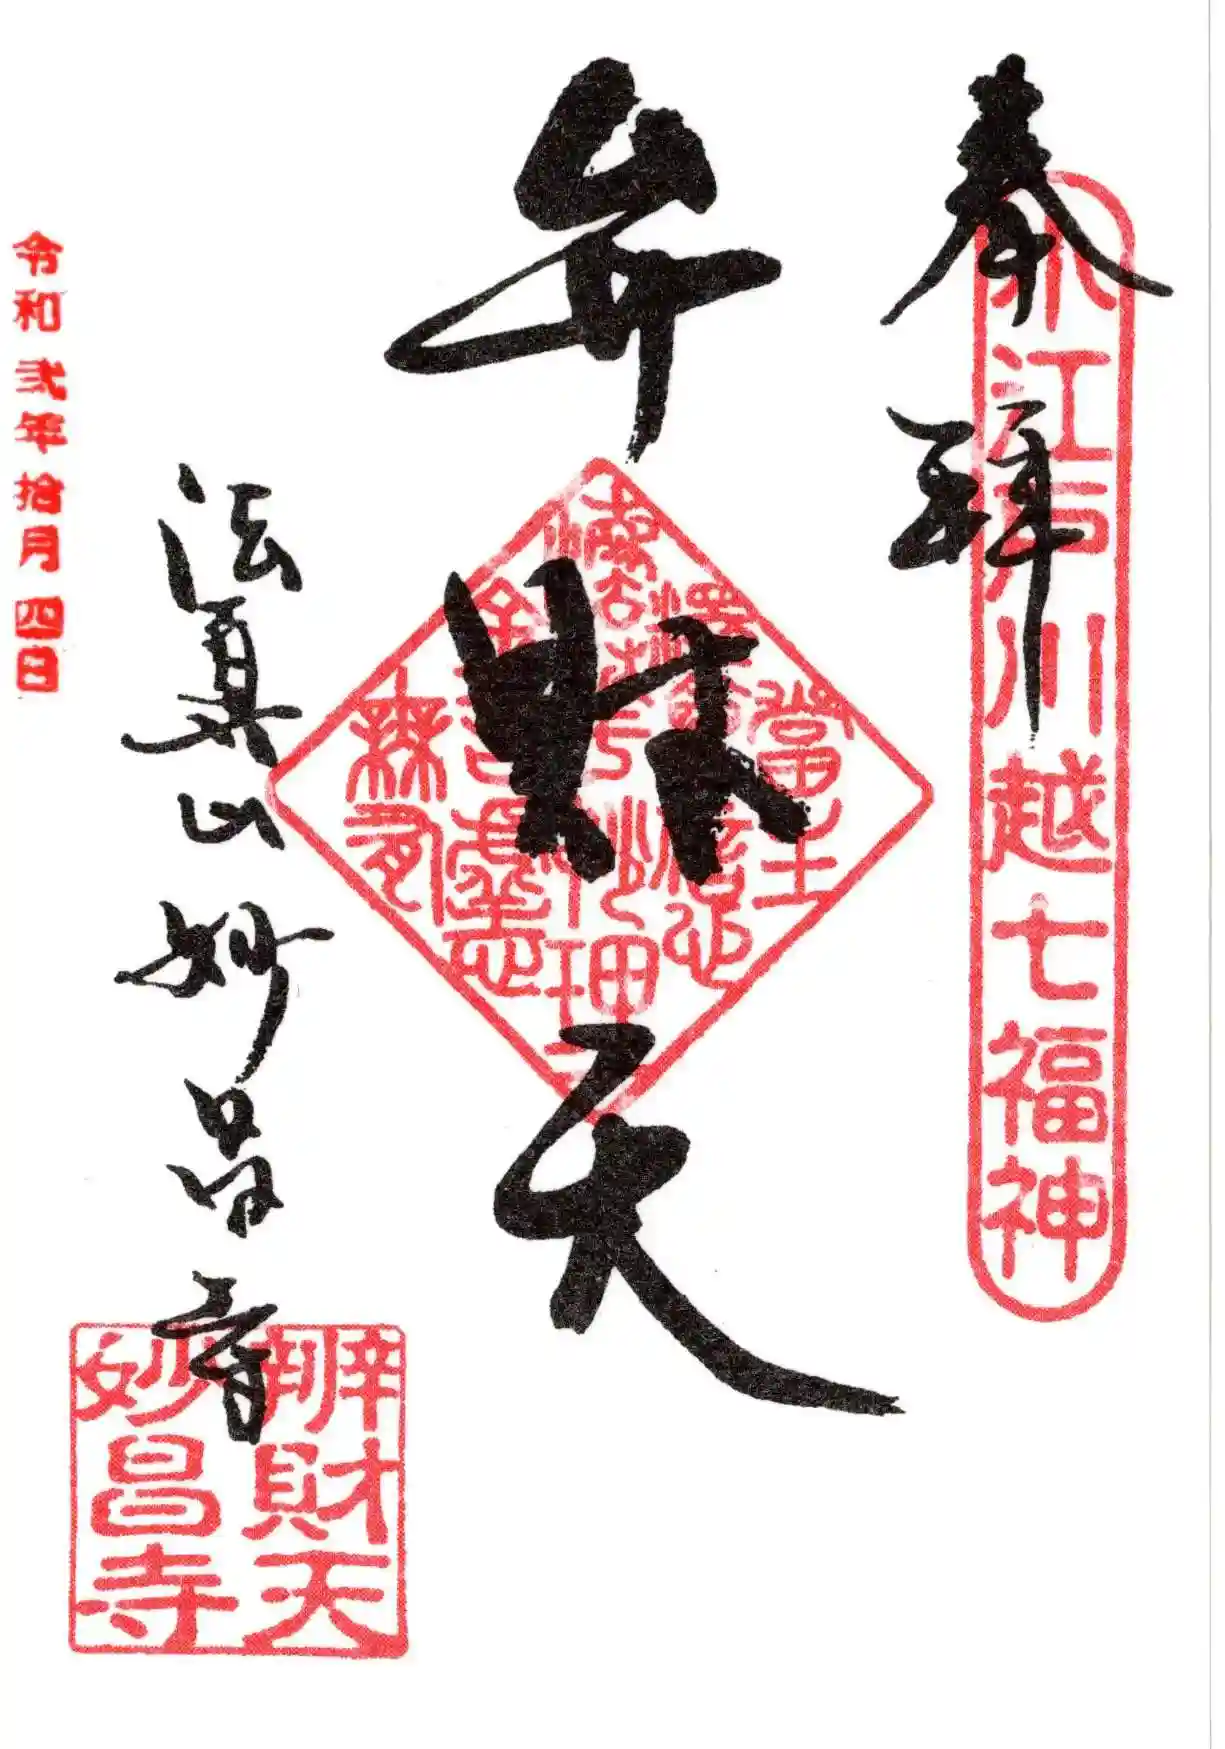 奉拝
小江戸川越七福神
弁財天
法眞山妙昌寺
辨財天
妙昌寺
令和弐年拾月四日